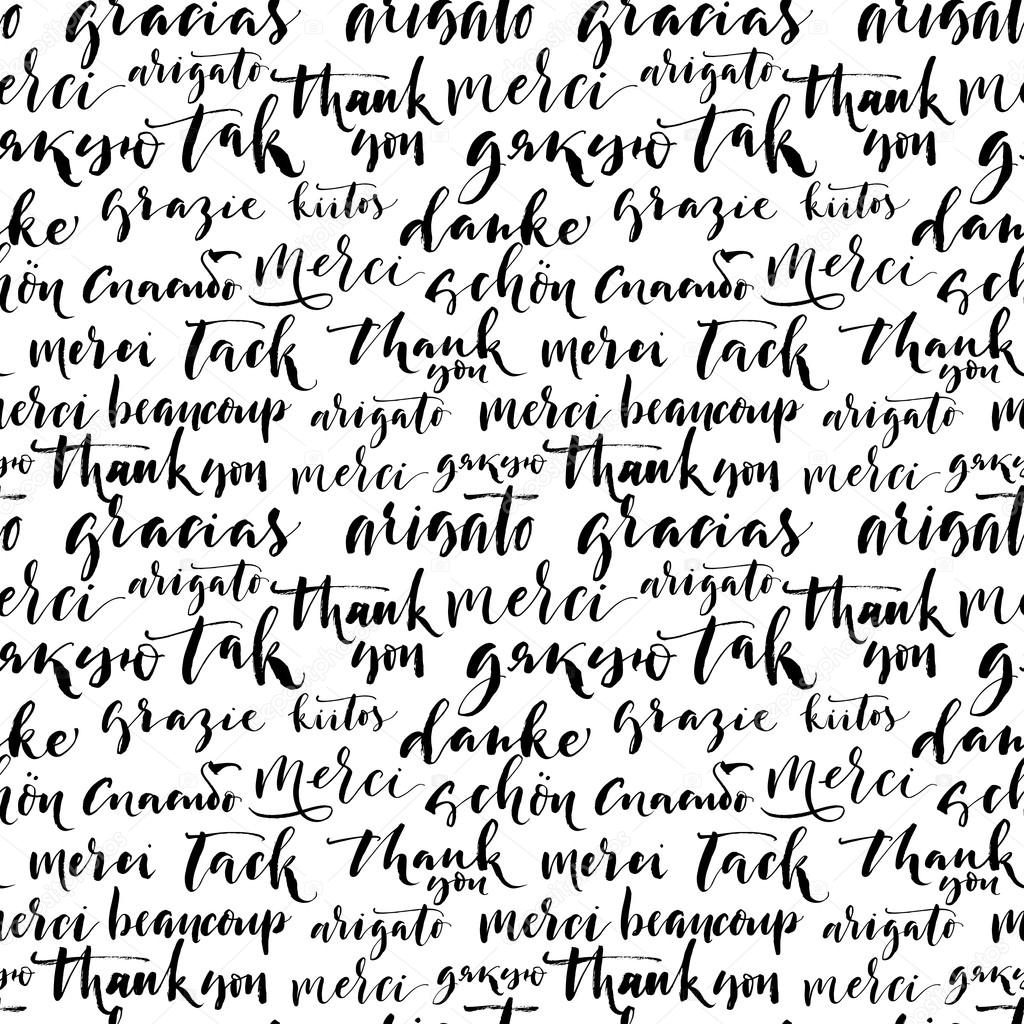 gracias arigato gracias
merci arigato thank merci arigato thank
дякую tak you дякую tak you
grazie kiitos danke grazie kiitos
schön спасибо merci schön спасибо merci
merci tack thank you merci tack thank you
merci beaucoup arigato merci beaucoup arigato
дякую thank you merci дякую thank you merci дякую
gracias arigato gracias arigato
merci arigato thank merci arigato thank
дякую tak you дякую tak you
grazie kiitos danke grazie kiitos
schön спасибо merci schön спасибо merci
merci tack thank you merci tack thank you
merci beaucoup arigato merci beaucoup arigato
thank you merci дякую thank you merci